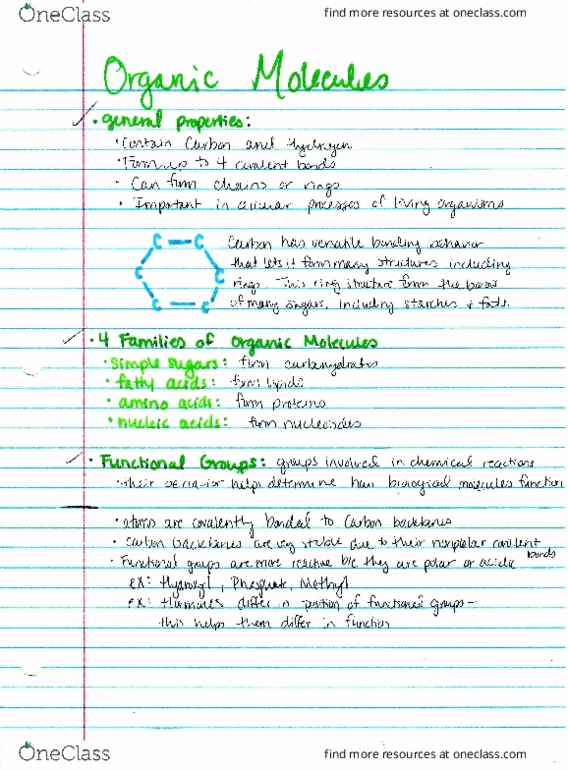 OneClass
find more resources at oneclass.com
Organic Molecules
• general properties:
• Contain Carbon and Hydrogen
• Form up to 4 covalent bonds
• Can form chains or rings
• Important in cellular processes of living organisms
C C
C C
C C
Carbon has versatile bonding behavior
that lets it form many structures including
rings. This ring structure form the basis
of many sugars, including starches + fats.
• 4 Families of Organic Molecules
• Simple sugars: form carbohydrates
• fatty acids: form lipids
• amino acids: form proteins
• nucleic acids: form nucleosides
• Functional Groups: groups involved in chemical reactions
• their behavior helps determine how biological molecules function
• atoms are covalently bonded to Carbon backbones
• Carbon backbones are very stable due to their nonpolar covalent bonds
• Functional groups are more reactive b/c they are polar or acidic
ex: Hydroxyl, Phosphate, Methyl
ex: Hormones differ in position of functional groups -
this helps them differ in function
OneClass
find more resources at oneclass.com